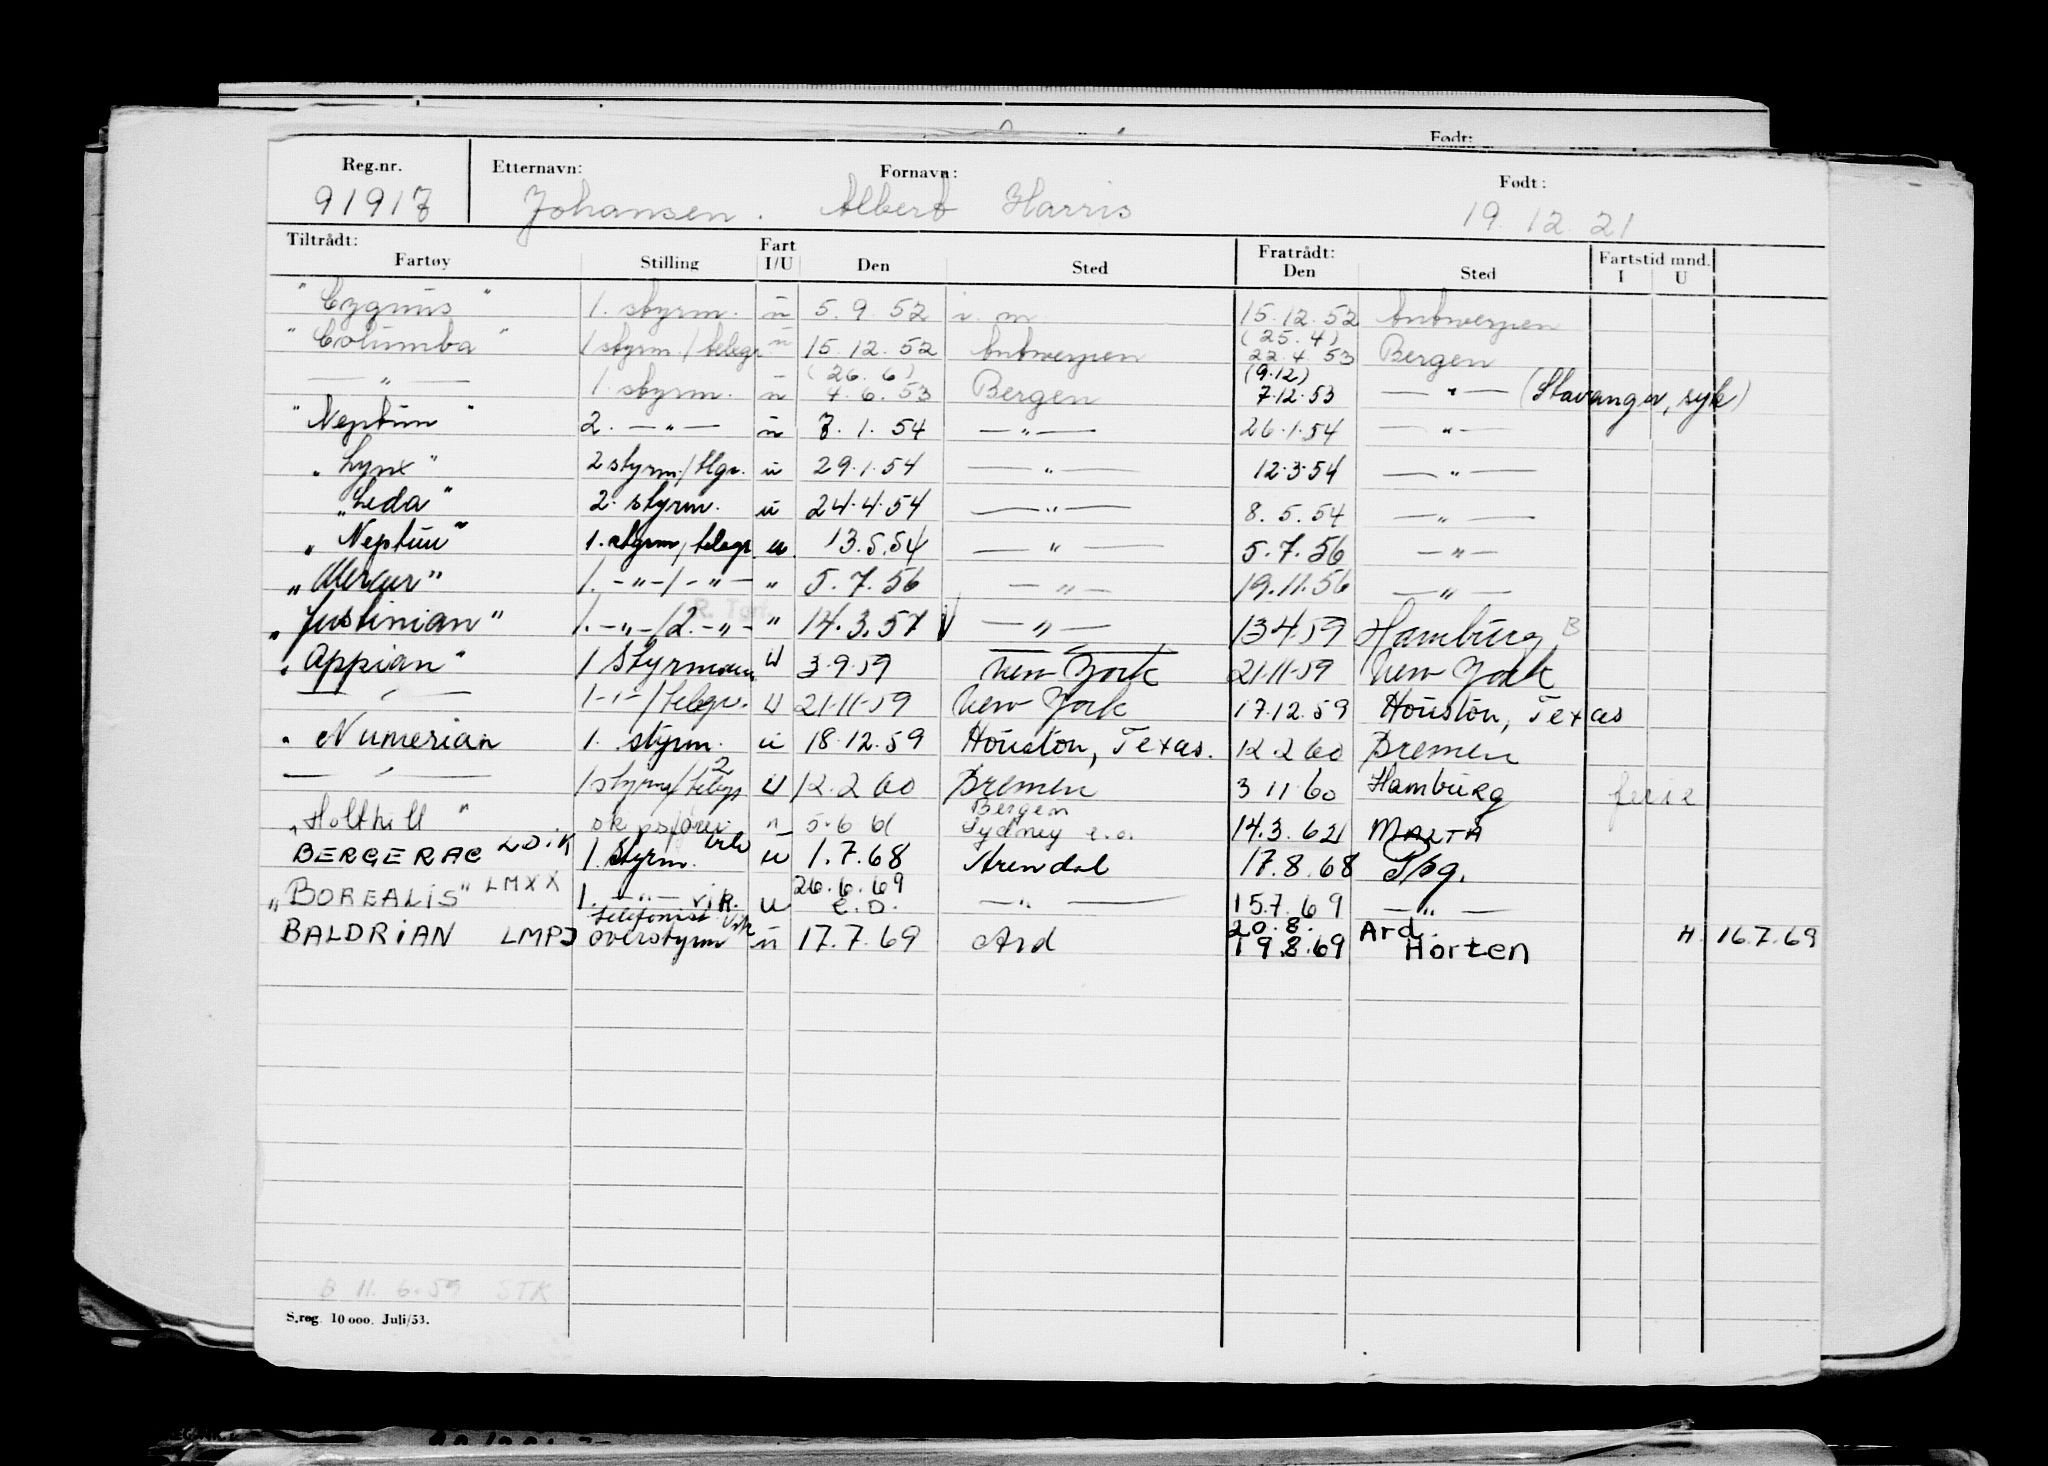 Født:
Reg.nr. Etternavn: Fornavn: Født:
91917 Johansen. Albert Harris 19.12.21
Tiltrådt: Fart Fratrådt: Fartstid mnd.
Fartøy Stilling I/U Den Sted Den Sted I U
"Cygnus" 1. styrm. u 5.9.52 i.m 15.12.52 Antwerpen
"Columba" 1 styrm/telegr u 15.12.52 Antwerpen (25.4) 22.4.53 Bergen
— " — 1. styrm. u (26.6) 4.6.53 Bergen (9.12) 7.12.53 — " — (Stavanger, syk)
"Neptun" 2. — " — u 7.1.54 — " — 26.1.54 — " —
"Lynx" 2 styrm./tlgr. u 29.1.54 — " — 12.3.54 — " —
"Leda" 2. styrm. u 24.4.54 — " — 8.5.54 — " —
"Neptun" 1. styrm/telegr. u. 13.5.54 — " — 5.7.56 — " —
"Mercur" 1. - " - / - " - " 5.7.56 — " — 19.11.56 — " —
R. Tgrf.
"Justinian" 1. - " - /2. - " - " 14.3.57 V — " — 13.4.59 Hamburg B
"Appian" 1 Styrmann U 3.9.59 New York 21.11.59 New York
— " — 1 - " - /telegr. U 21.11.59 New York 17.12.59 Houston, Texas
" Numerian 1. styrm. u 18.12.59 Houston, Texas. 12.2.60 Bremen
— " — 1 styrm/2 telegr U 12.2.60 Bremen 3.11.60 Hamburg ferie
"Holthill" u 5.6.61 Bergen Sydney e.o. 14.3.62 MALTA
BERGERAC LDIK 1. styrm. vik u 1.7.68 Arendal 17.8.68 Pbg.
"BOREALIS" LMXX 1. — " — vik. u 26.6.69 e.o. — " — 15.7.69 — " —
BALDRIAN LMPJ telefonist overstyrm Vik u 17.7.69 Ard 20.8. 19.8.69 Ard. Horten H 16.7.69
B 11.6.59 STK
S.reg. 10 000. Juli/53.